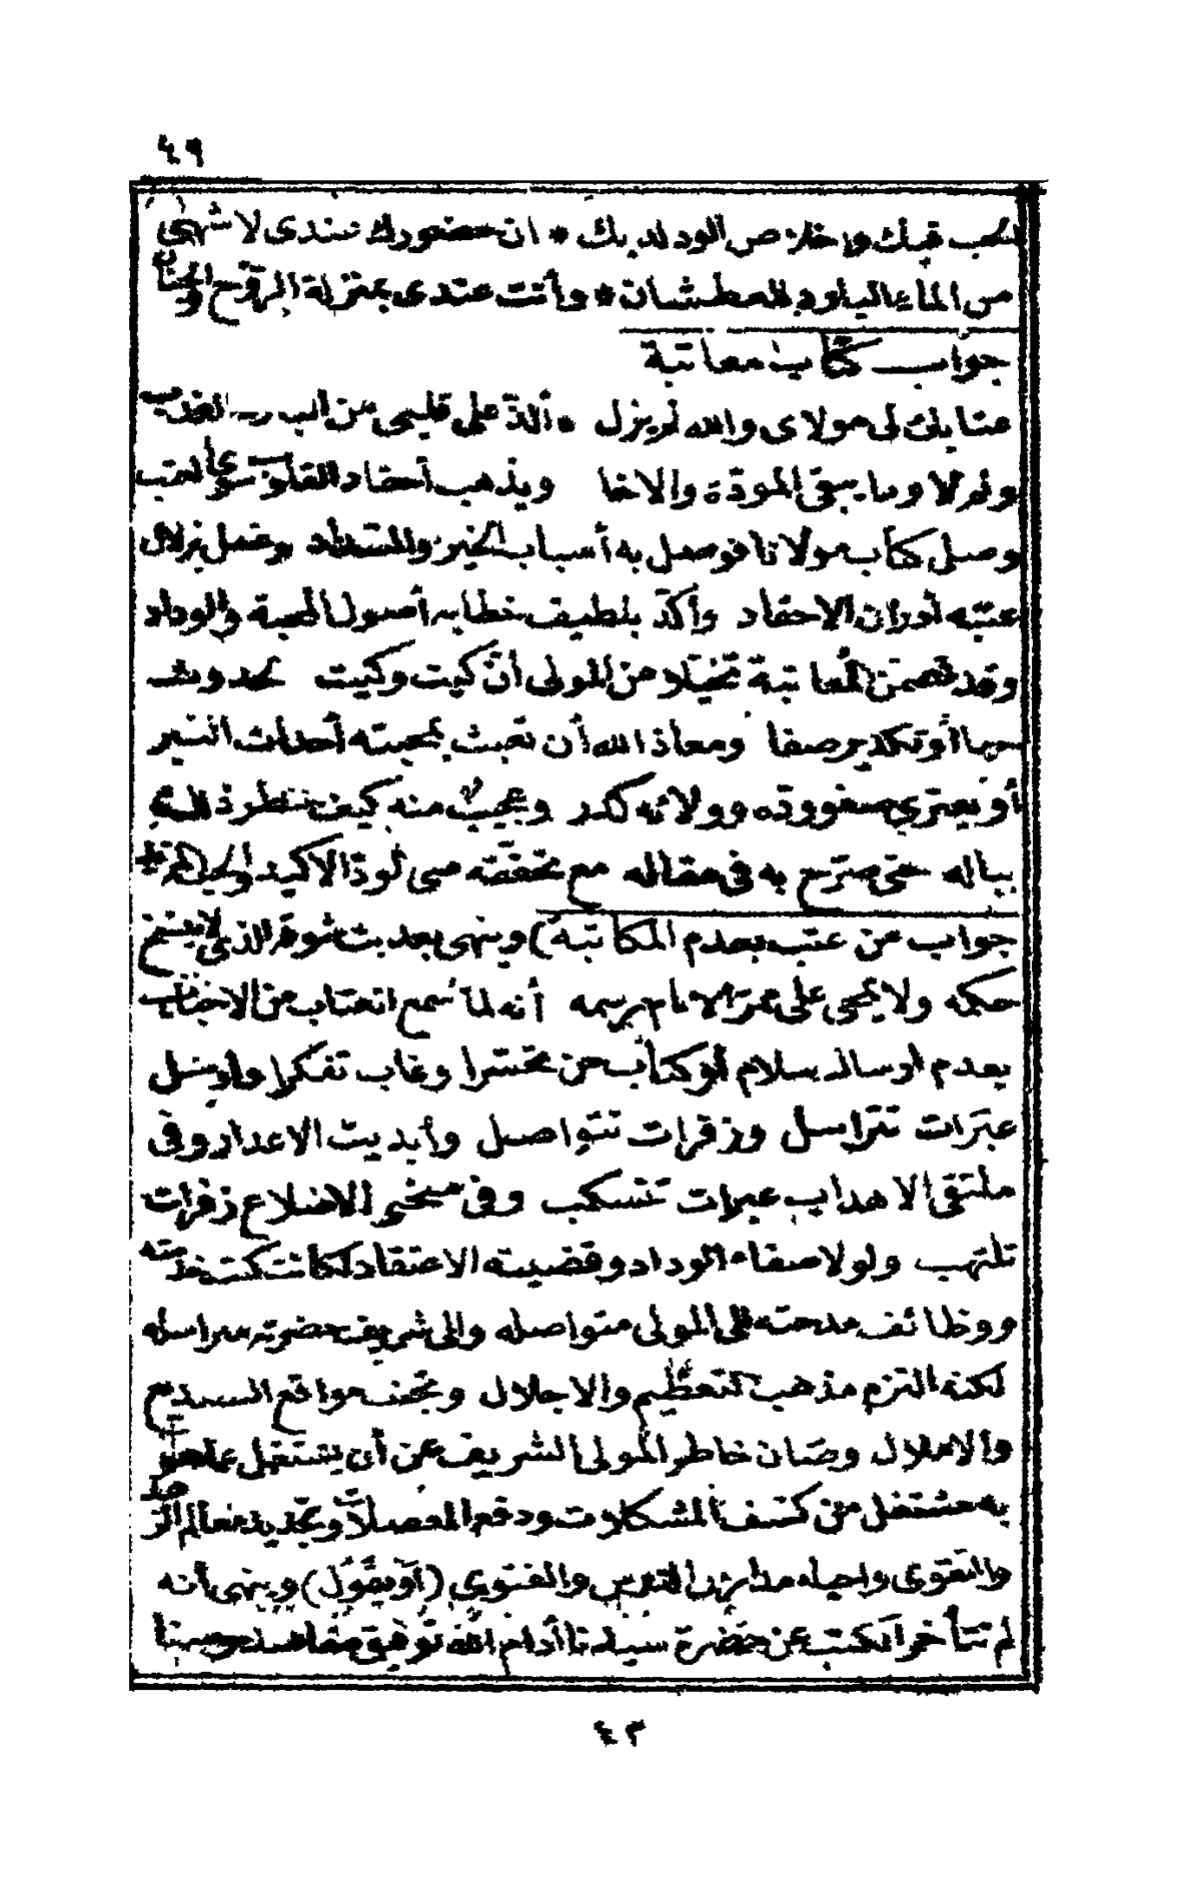 ٤٩
الحب قبلك واخلاص الود لديك * ان حضورك عندى لا شهى
من الماء البارد للعطشان * وأنت عندى بمنزلة الروح والجنان
جواب كتاب معاتبة
عتابك لى مولاى والله لم يزل * ألذ على قلبى من البارد العذب
ولم لا وما يبقى المودة والاخا ويذهب أحقاد القلوب سوى العتب
وصل كتاب مولانا فوصل به أسباب الخير والسداد وغسل بزلال
عتبه أدران الاحقاد وأكد بلطيف خطابه أصول المحبة والوداد
وقد تضمن المعاتبة تخيلا من المولى أن كيت وكيت لحدوث
أو تكدير صفا ومعاذ الله أن تعبث بمحبته أحداث الغير
أو يعترى صفو وده وولائه كدر وعجيب منه كيف خطر ذلك
بباله حتى صرح به فى مقاله مع تحققه منى الود الاكيد
جواب من عتب بعدم المكاتبة) وينهى بعد بث شوقه الذى لا ينسخ
حكمه ولا يمحى على ممر الايام رسمه أنه لما سمع العتاب من الاحباب
بعدم ارسال سلام أو كتاب حن تحسرا وغاب تفكرا وأرسل
عبرات تتراسل وزفرات تتواصل وأبديت الاعذار وفى
ملتقى الاهداب عبرات تنسكب وفى الاضلاع زفرات
تلتهب ولولا صفاء الوداد وقضيته الاعتقاد لكانت كتب خدمته
ووظائف مدحته الى المولى متواصله والى شريف حضرته مراسله
لكنه التزم مذهب التعظيم والاجلال وتجنب مواقع
والاملال وصان خاطر المولى الشريف عن أن يشتغل عما هو
به مشتغل من كشف المشكلات ودفع المعضلات وتجديد معالم
والتقوى واحياء مدارس الدرس والفتوى (أو يقول) وينهى أنه
لم تتأخر الكتب عن حضرة سيدنا أدام الله توفيق مقاصده
٤٣